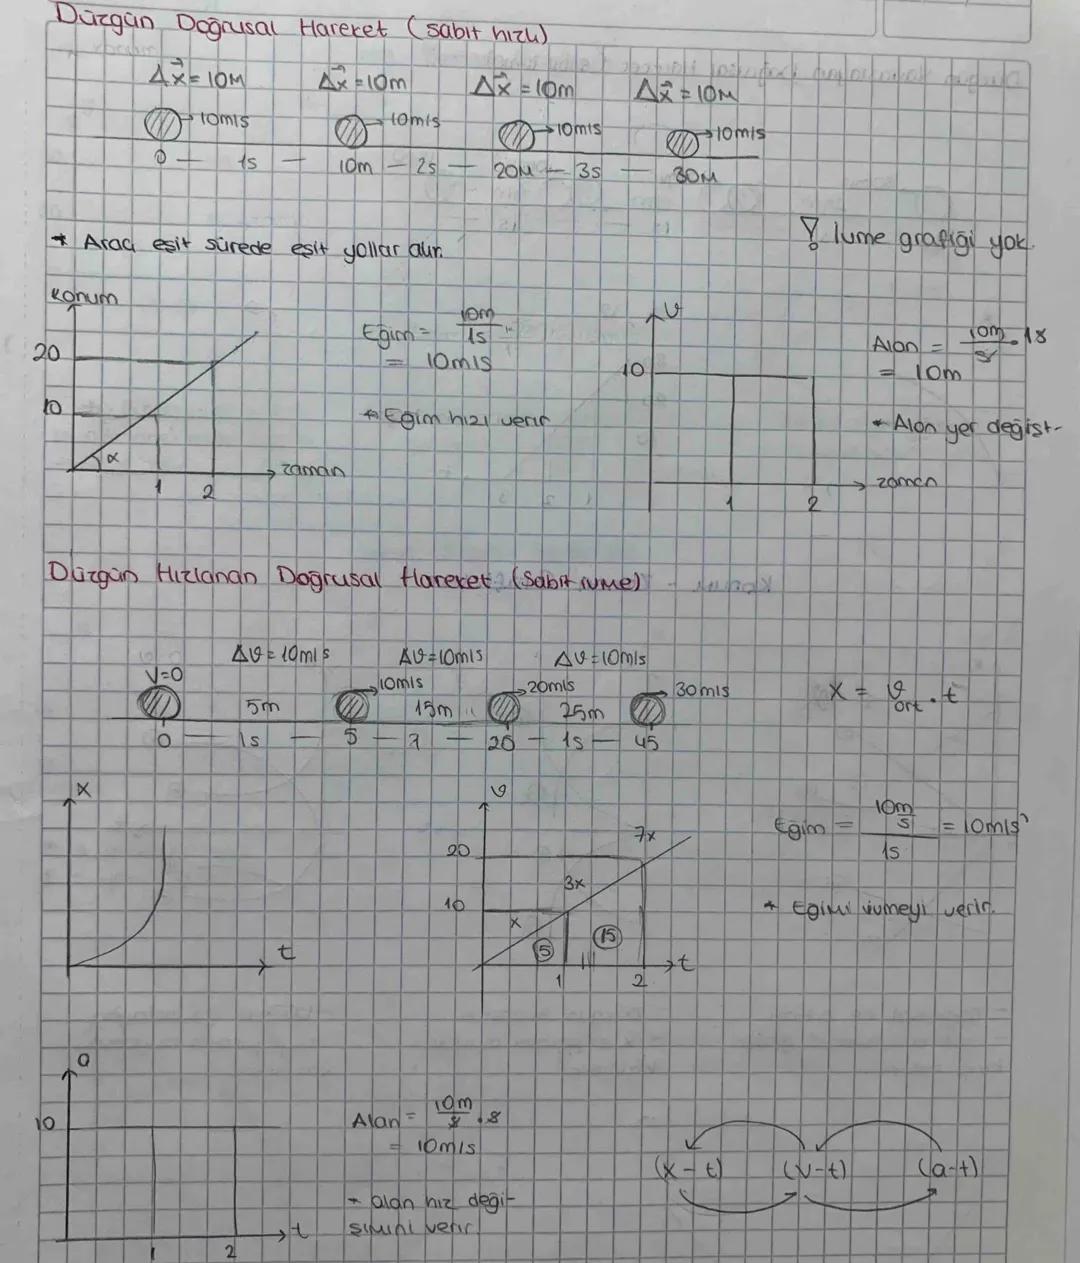 Düzgün Doğrusal Hareket (sabit hızlı)
Δx = 10m Δx = 10m Δx = 10m Δx = 10m
10m/s 10m/s 10m/s 10m/s
0 — 1s — 10m — 2s — 20m — 3s — 30m
* Aracı eşit sürede eşit yollar alır.
! İvme grafiği yok.
Konum
20
10
α
1 2
zaman
Eğim = 10m / 1s
= 10m/s
* Eğim hızı verir
v
10
1 2
zaman
Alan = 10m/s . 1s
= 10m
* Alan yer değişt-
Düzgün Hızlanan Doğrusal Hareket (Sabit ivme)
Δv = 10m/s Δv = 10m/s Δv = 10m/s
V=0 10m/s 20m/s 30m/s
5m 15m 25m
0 — 1s — 5 — — 20 — 1s — 45
x = v ort . t
x
t
v
20
10
x 3x 7x
5 15
1 2
t
Eğim = 10m/s / 1s = 10m/s²
* Eğimi ivmeyi verir.
a
10
1 2
t
Alan = 10m/s . s
= 10m/s
* alan hız deği-
şimini verir.
(x-t) (v-t) (a-t)